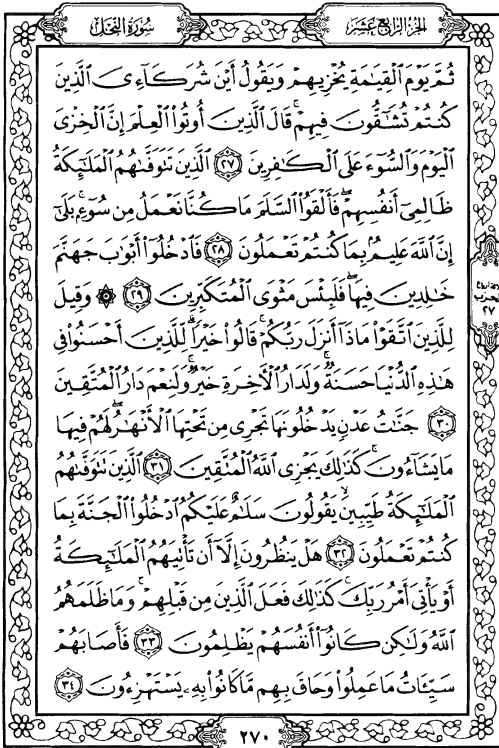 سُورَةُ النَّحْلِ
الجُزءُ الرَّابِعُ عَشَرَ
ثُمَّ يَوْمَ ٱلْقِيَٰمَةِ يُخْزِيهِمْ وَيَقُولُ أَيْنَ شُرَكَآءِىَ ٱلَّذِينَ
كُنتُمْ تُشَٰٓقُّونَ فِيهِمْ ۚ قَالَ ٱلَّذِينَ أُوتُوا۟ ٱلْعِلْمَ إِنَّ ٱلْخِزْىَ
ٱلْيَوْمَ وَٱلسُّوٓءَ عَلَى ٱلْكَٰفِرِينَ ٢٧ ٱلَّذِينَ تَتَوَفَّىٰهُمُ ٱلْمَلَٰٓئِكَةُ
ظَالِمِىٓ أَنفُسِهِمْ ۖ فَأَلْقَوُا۟ ٱلسَّلَمَ مَا كُنَّا نَعْمَلُ مِن سُوٓءٍۭ ۚ بَلَىٰٓ
إِنَّ ٱللَّهَ عَلِيمٌۢ بِمَا كُنتُمْ تَعْمَلُونَ ٢٨ فَٱدْخُلُوٓا۟ أَبْوَٰبَ جَهَنَّمَ
خَٰلِدِينَ فِيهَا ۖ فَلَبِئْسَ مَثْوَى ٱلْمُتَكَبِّرِينَ ٢٩ ۞ وَقِيلَ
لِلَّذِينَ ٱتَّقَوْا۟ مَاذَآ أَنزَلَ رَبُّكُمْ ۚ قَالُوا۟ خَيْرًا ۗ لِّلَّذِينَ أَحْسَنُوا۟ فِى
هَٰذِهِ ٱلدُّنْيَا حَسَنَةٌ ۚ وَلَدَارُ ٱلْءَاخِرَةِ خَيْرٌ ۚ وَلَنِعْمَ دَارُ ٱلْمُتَّقِينَ
٣٠ جَنَّٰتُ عَدْنٍ يَدْخُلُونَهَا تَجْرِى مِن تَحْتِهَا ٱلْأَنْهَٰرُ ۖ لَهُمْ فِيهَا
مَا يَشَآءُونَ ۚ كَذَٰلِكَ يَجْزِى ٱللَّهُ ٱلْمُتَّقِينَ ٣١ ٱلَّذِينَ تَتَوَفَّىٰهُمُ
ٱلْمَلَٰٓئِكَةُ طَيِّبِينَ ۙ يَقُولُونَ سَلَٰمٌ عَلَيْكُمُ ٱدْخُلُوا۟ ٱلْجَنَّةَ بِمَا
كُنتُمْ تَعْمَلُونَ ٣٢ هَلْ يَنظُرُونَ إِلَّآ أَن تَأْتِيَهُمُ ٱلْمَلَٰٓئِكَةُ
أَوْ يَأْتِىَ أَمْرُ رَبِّكَ ۚ كَذَٰلِكَ فَعَلَ ٱلَّذِينَ مِن قَبْلِهِمْ ۚ وَمَا ظَلَمَهُمُ
ٱللَّهُ وَلَٰكِن كَانُوٓا۟ أَنفُسَهُمْ يَظْلِمُونَ ٣٣ فَأَصَابَهُمْ
سَيِّـَٔاتُ مَا عَمِلُوا۟ وَحَاقَ بِهِم مَّا كَانُوا۟ بِهِۦ يَسْتَهْزِءُونَ ٣٤
الحزب
٢٧
٢٧٠